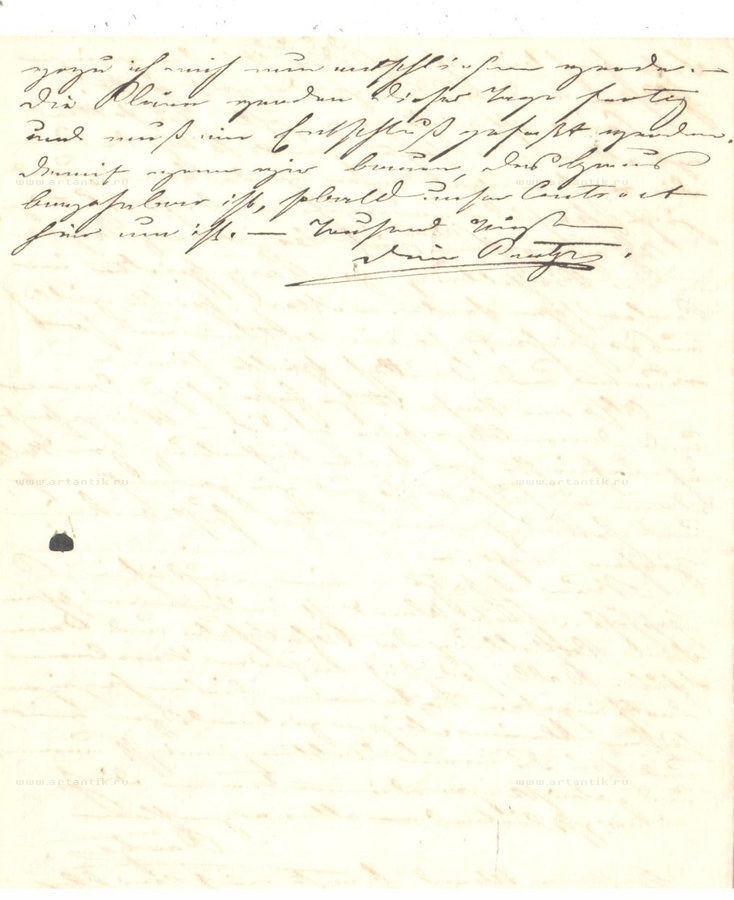 wozu ich mich nun entschließen werde. —
Die Pläne werden dieser Tage fertig
und muß ein Entschluß gefaßt werden,
damit wenn wir bauen, das Haus
beziehbar ist, sobald unser Contract
hier um ist. — Tausend Küße
Dein
www.artantik.ru www.artantik.ru
www.artantik.ru www.artantik.ru
www.artantik.ru www.artantik.ru